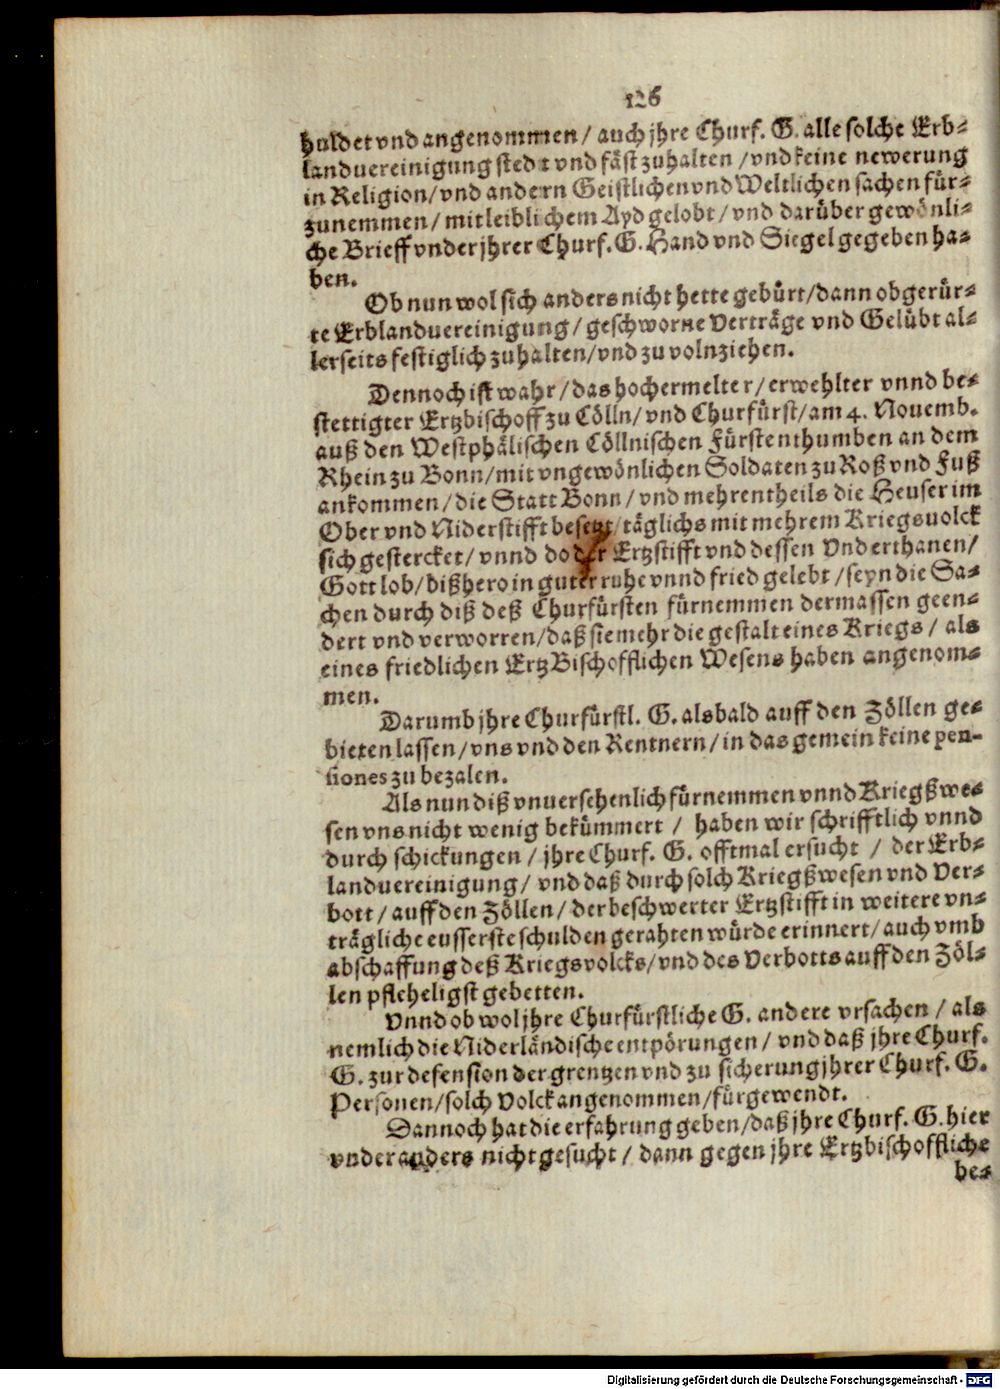 126
huldet vnd angenommen / auch jhre Churf. G. alle solche Erb-
landuereinigung stedt vnd fäst zuhalten / vnd keine newerung
in Religion / vnd andern Geistlichen vnd Weltlichen sachen für-
zunemmen / mit leiblichem Ayd gelobt / vnd darüber gewönli-
che Brieff vnder jhrer Churf. G. Hand vnd Siegel gegeben ha-
ben.
Ob nun wol sich anders nicht hette gebürt / dann obgerür-
te Erblanduereinigung / geschworne Verträge vnd Gelübt al-
lerseits festiglich zuhalten / vnd zu volnziehen.
Dennoch ist wahr / das hochermelter / erwehlter vnnd be-
stettigter Ertzbischoff zu Cölln / vnd Churfürst / am 4. Nouemb.
auß den Westphälischen Cöllnischen Fürstenthumben an dem
Rhein zu Bonn / mit vngewönlichen Soldaten zu Roß vnd Fuß
ankommen / die Statt Bonn / vnd mehrentheils die Heuser im
Ober vnd Niderstifft besetzt / täglichs mit mehrem Kriegsuolck
sich gestercket / vnnd do der Ertzstifft vnd dessen Vnderthanen /
Gott lob / bißhero in guter ruhe vnnd fried gelebt / seyn die Sa-
chen durch diß deß Churfürsten fürnemmen dermassen geen-
dert vnd verworren / daß sie mehr die gestalt eines Kriegs / als
eines friedlichen ErtzBischofflichen Wesens haben angenom-
men.
Darumb jhre Churfürstl. G. alsbald auff den Zöllen ge-
bieten lassen / vns vnd den Rentnern / in das gemein keine pen-
siones zu bezalen.
Als nun diß vnuersehenlich fürnemmen vnnd Kriegßwe-
sen vns nicht wenig bekümmert / haben wir schrifftlich vnnd
durch schickungen / jhre Churf. G. offtmal ersucht / der Erb-
landuereinigung / vnd daß durch solch Kriegßwesen vnd Ver-
bott / auff den Zöllen / der beschwerter Ertzstifft in weitere vn-
trägliche eusserste schulden gerahten würde erinnert / auch vmb
abschaffung deß Kriegsvolcks / vnd des Verbotts auff den Zöl-
len pfleheligst gebetten.
Vnnd ob wol jhre Churfürstliche G. andere vrsachen / als
nemlich die Niderländische entpörungen / vnd daß jhre Churf.
G. zur defension der grentzen vnd zu sicherung jhrer Churf. G.
Personen / solch Volck angenommen / fürgewendt.
Dannoch hat die erfahrung geben / daß jhre Churf. G. hier
vnder anders nicht gesucht / dann gegen jhre Ertzbischoffliche
be-
Digitalisierung gefördert durch die Deutsche Forschungsgemeinschaft - DFG